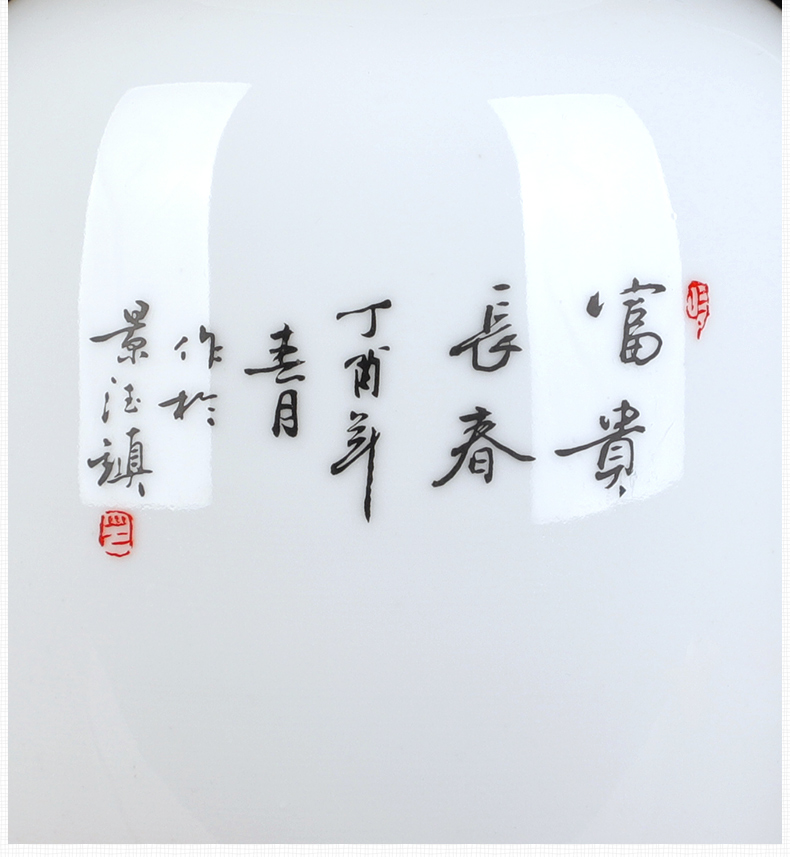 富貴
長春
丁酉年
春月
作於
景德鎮